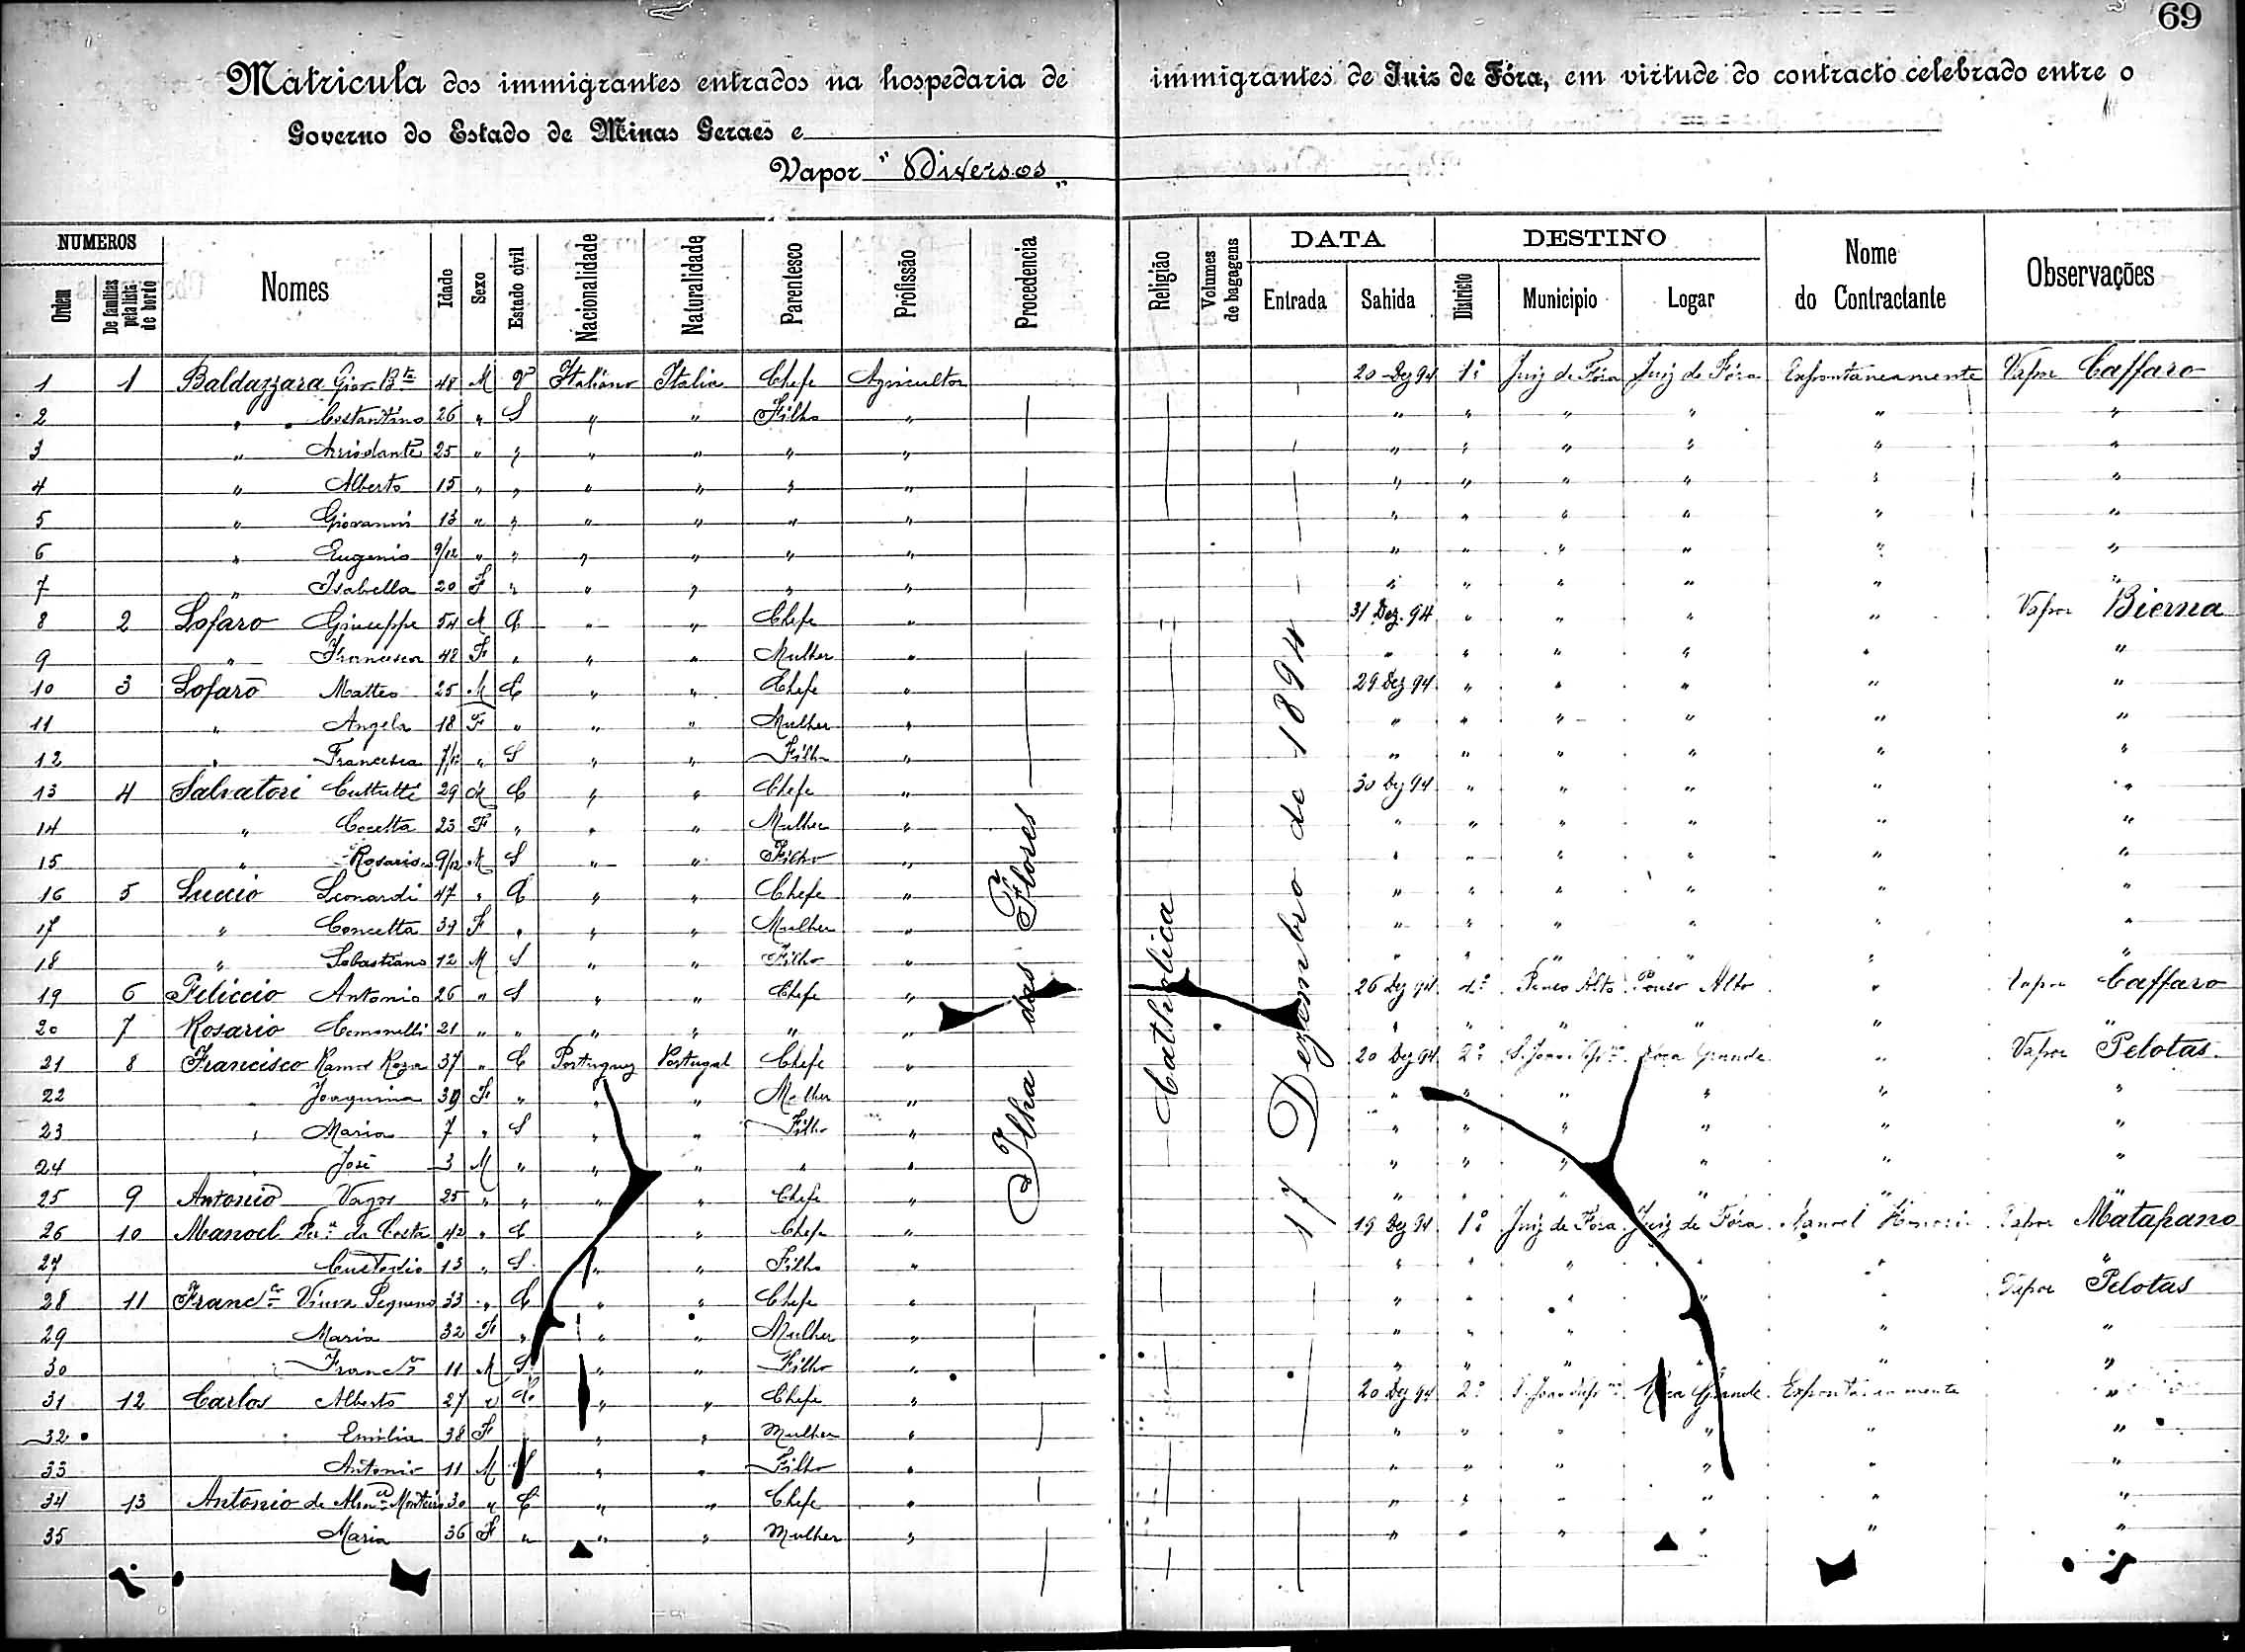 69
Matricula dos immigrantes entrados na hospedaria de immigrantes de Juiz de Fóra, em virtude do contracto celebrado entre o
Governo do Estado de Minas Geraes e
Vapor "Diversos"
NUMEROS DATA DESTINO
Ordem De familias pela lista de bordo Nomes Idade Sexo Estado civil Nacionalidade Naturalidade Parentesco Profissão Procedencia Religião Volumes de bagagens Entrada Sahida Districto Municipio Logar Nome do Contractante Observações
1 1 Baldazzara Giov Bta 48 M Vo Italiano Italia Chefe Agricultor 20 Dez 94 1º Juiz de Fóra Juiz de Fóra Espontaneamente Vapor Caffaro
2 " Costantino 26 " S " " Filho " " " " " " "
3 " Arriodante 25 " " " " " " " " " " " "
4 " Alberto 15 " " " " " " " " " " " "
5 " Giovanni 13 " " " " " " " " " " " "
6 " Eugenio 9/12 " " " " " " " " " " " "
7 " Isabella 20 F " " " " " " " " " " "
8 2 Lofaro Giuseppe 54 M C " " Chefe " 31 Dez. 94 " " " " Vapor Bierna
9 " Francesca 48 F " " " Mulher " " " " " " "
10 3 Lofaro Matteo 25 M C " " Chefe " 29 Dez 94 " " " " "
11 " Angela 18 F " " " Mulher " " " " " " "
12 " Francesca " S " " Filha " " " " " " "
13 4 Salvatori 29 M C " " Chefe " 30 Dez 94 " " " " "
14 " 23 F " " " Mulher " " " " " " "
15 " Rosario 9/12 M S " " Filho " " " " " " "
16 5 Luccio Leonardi 47 " C " " Chefe " " " " " " "
17 " Concetta F " " " Mulher " " " " " " "
18 " Sebastiano 12 M S " " Filho " " " " " " "
19 6 Feliccio Antonio 26 " S " " Chefe " 26 Dez 94 Pouso Alto Pouso Alto " Vapor Caffaro
20 7 Rosario 21 " " " " " " " " " " " "
21 8 Francisco Ramos Roza 37 " C Portuguez Portugal Chefe " 20 Dez 94 2º Roça Grande " Vapor Pelotas
22 " Joaquina 39 F " " " Mulher " " " " " " "
23 " Maria 7 " S " " Filho " " " " " " "
24 " José 3 M " " " " " " " " " " "
25 9 Antonio 25 " " " " Chefe " " " " " " "
26 10 Manoel da Costa 42 " C " Chefe " 19 Dez 94 1º Juiz de Fóra Juiz de Fóra Manoel Honorio Vapor Matapano
27 Custodio 13 " S " " Filho " " " " " " "
28 11 Francco Vieira Pequeno 33 " C " " Chefe " " " " " " Vapor Pelotas
29 Maria 32 F " " " Mulher " " " " " " "
30 Francco 11 M S " " Filho " " " " " " "
31 12 Carlos Alberto 27 " C " " Chefe " 20 Dez 94 2º Roça Grande Espontaneamente "
32 " Emilia 38 F " " Mulher " " " " " " "
33 Antonio 11 M S " " Filho " " " " " " "
34 13 Antonio de Almda Monteiro 30 " C " " Chefe " " " " " " "
35 Maria 36 F " " " Mulher " " " " " " "
Ilha das Flores
Catholica
17 Dezembro de 1894